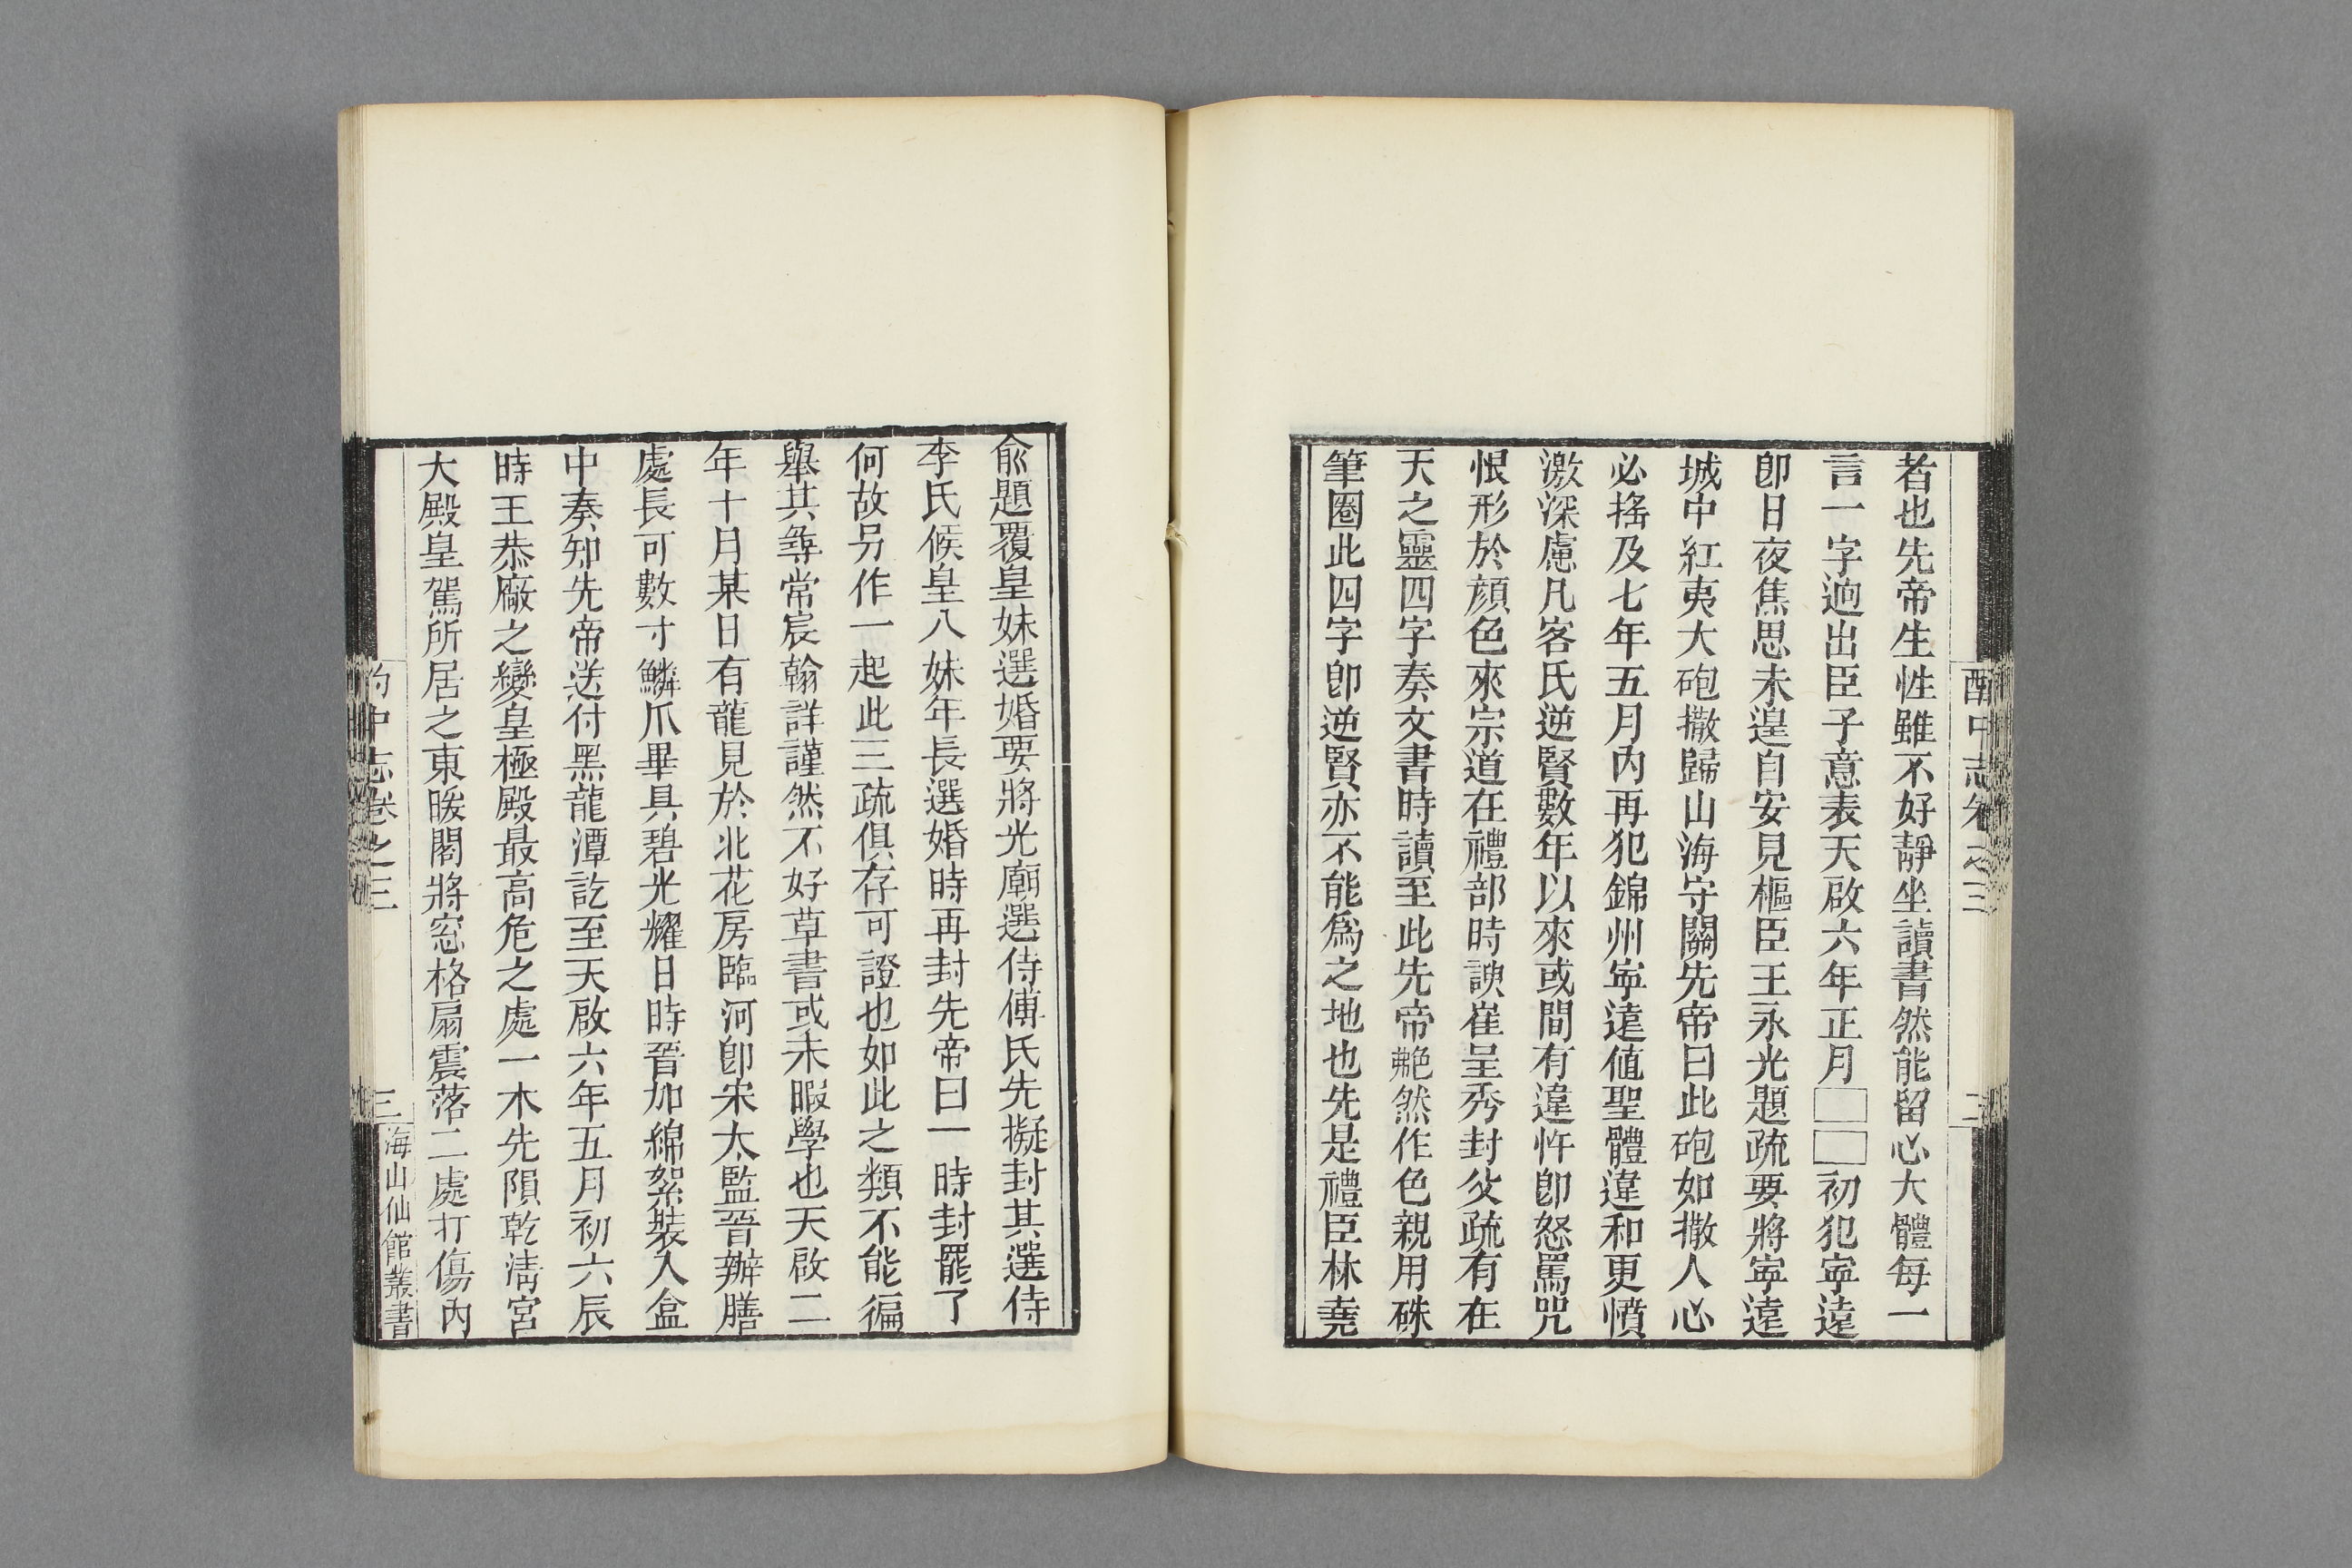 酌中志卷之三 二
者也先帝生性雖不好靜坐讀書然能留心大體每一
言一字逈出臣子意表天啟六年正月□□初犯寧遠
卽日夜焦思未遑自安見樞臣王永光題疏要將寧遠
城中紅夷大砲撒歸山海守關先帝曰此砲如撒人心
必搖及七年五月內再犯錦州寧遠値聖體違和更憤
激深慮凡客氏逆賢數年以來或間有違忤卽怒罵咒
恨形於顏色來宗道在禮部時諛崔呈秀封父疏有在
天之靈四字奏文書時讀至此先帝艴然作色親用硃
筆圈此四字卽逆賢亦不能爲之地也先是禮臣林堯
兪題覆皇妹選婚要將光廟選侍傅氏先擬封其選侍
李氏候皇八妹年長選婚時再封先帝曰一時封罷了
何故另作一起此三疏俱存可證也如此之類不能徧
舉其尋常宸翰詳謹然不好草書或未暇學也天啟二
年十月某日有龍見於北花房臨河卽宋太監晉辦膳
處長可數寸鱗爪畢具碧光耀日時晉加綿絮裝入盒
中奏知先帝送付黑龍潭訖至天啟六年五月初六辰
時王恭廠之變皇極殿最高危之處一木先隕乾淸宮
大殿皇駕所居之東暖閣將窓格扇震落二處打傷內
酌中志卷之三 三 海山仙館叢書